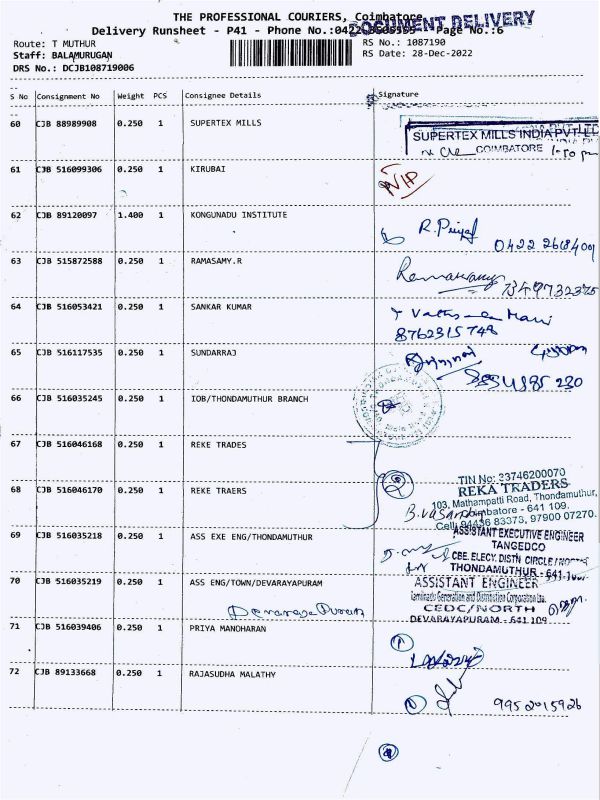 THE PROFESSIONAL COURIERS, Coimbatore
DOCUMENT DELIVERY
Delivery Runsheet - P41 - Phone No.: Page No.:6
Route: T MUTHUR
RS No.: 1087190
Staff: BALAMURUGAN
RS Date: 28-Dec-2022
DRS No.: DCJB108719006
S No Consignment No Weight PCS Consignee Details Signature
60 CJB 88989908 0.250 1 SUPERTEX MILLS
SUPERTEX MILLS INDIA PVT LTD
COIMBATORE
61 CJB 516099306 0.250 1 KIRUBAI
62 CJB 89120097 1.400 1 KONGUNADU INSTITUTE
63 CJB 515872588 0.250 1 RAMASAMY.R
64 CJB 516053421 0.250 1 SANKAR KUMAR
8762315748
65 CJB 516117535 0.250 1 SUNDARRAJ
66 CJB 516035245 0.250 1 IOB/THONDAMUTHUR BRANCH
67 CJB 516046168 0.250 1 REKE TRADES
68 CJB 516046170 0.250 1 REKE TRAERS
TIN No: 33746200070
REKA TRADERS
103, Mathampatti Road, Thondamuthur,
Coimbatore - 641 109.
Cell: 94436 83373, 97900 07270.
69 CJB 516035218 0.250 1 ASS EXE ENG/THONDAMUTHUR
ASSISTANT EXECUTIVE ENGINEER
TANGEDCO
CBE. ELECY. DISTN CIRCLE
THONDAMUTHUR
70 CJB 516035219 0.250 1 ASS ENG/TOWN/DEVARAYAPURAM
ASSISTANT ENGINEER
Tamilnadu Generation and Distribution Corporation Ltd.
CEDC/NORTH
DEVARAYAPURAM - 641 109
71 CJB 516039406 0.250 1 PRIYA MANOHARAN
72 CJB 89133668 0.250 1 RAJASUDHA MALATHY
9952015926